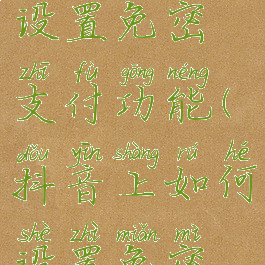 设置免密
zhī fù gōng néng
支付功能(
dǒu yīn shàng rú hé
抖音上如何
shè zhì miǎn mì
设置免密